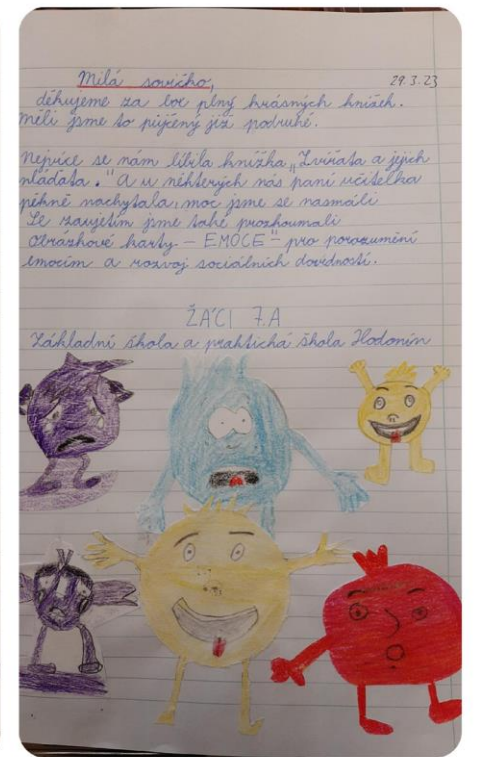 Milá sovičko, 29.3.23
děkujeme za box plný krásných knížek.
Měli jsme to půjčený již podruhé.
Nejvíce se nám líbila knížka „Zvířata a jejich
mláďata." A u některých nás paní učitelka
pěkně nachytala, moc jsme se nasmáli
Se zaujetím jsme také prozkoumali
obrázkové karty - EMOCE" - pro porozumění
emocím a rozvoj sociálních dovedností.
ŽÁCI 7.A
Základní škola a praktická škola Hodonín